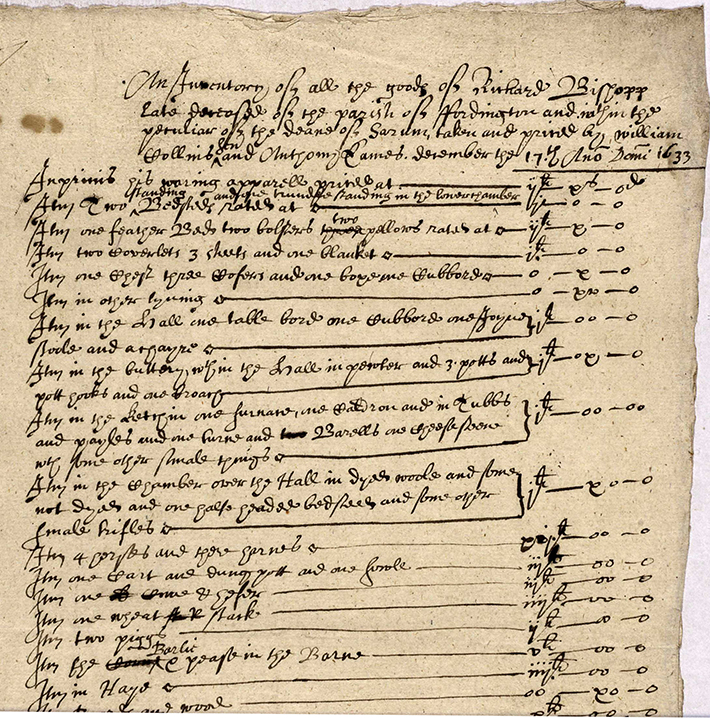 An Inventory of all the goods of Richard Bishopp
late deceased of the parish of ffordington and wthin the
peculiar of the deane of Sarum, taken and prised by William
Collins sen and Anthony Eames. december the 17th Ano Domi 1633
Inprimis his waring apparell prised at ij
standing and one trundle standing in the lowerchamber
Itm Two Bedsteds rated at o o
Itm one feather Bed two bolsters two pellows rated at ij x o
Itm two Coverlets 3 sheets and one blanket o o
Itm one Chest three Cofers and one boxe one Cubbord o x o
Itm in other lynning o xx o
Itm in the Hall one table bord one Cubbord one Joyne j oo o
stoole and a chayre
Itm in the buttery wth in the Hall in pewter and 3 potts and j ox o
pott hooks and one broach
Itm in the Ketchin one furnace one Caldron and in Tubbs j oo oo
and payles and one curne and Barells one
wth some other smale things
Itm in the Chamber over the Hall in dyed woole and some j xo o
not dyed and one halfe headed bedsteed and some other
smale trifles
Itm 4 horses and there harnes oo o
Itm one Cart and dung pott and one iij oo o
Itm one & hefer iiij oo o
Itm one wheat stack ij oo o
Itm two piggs j oo o
Itm the Barlie & pease in the Barne v oo o
Itm in Haye iiij oo o
and wood oo xo o